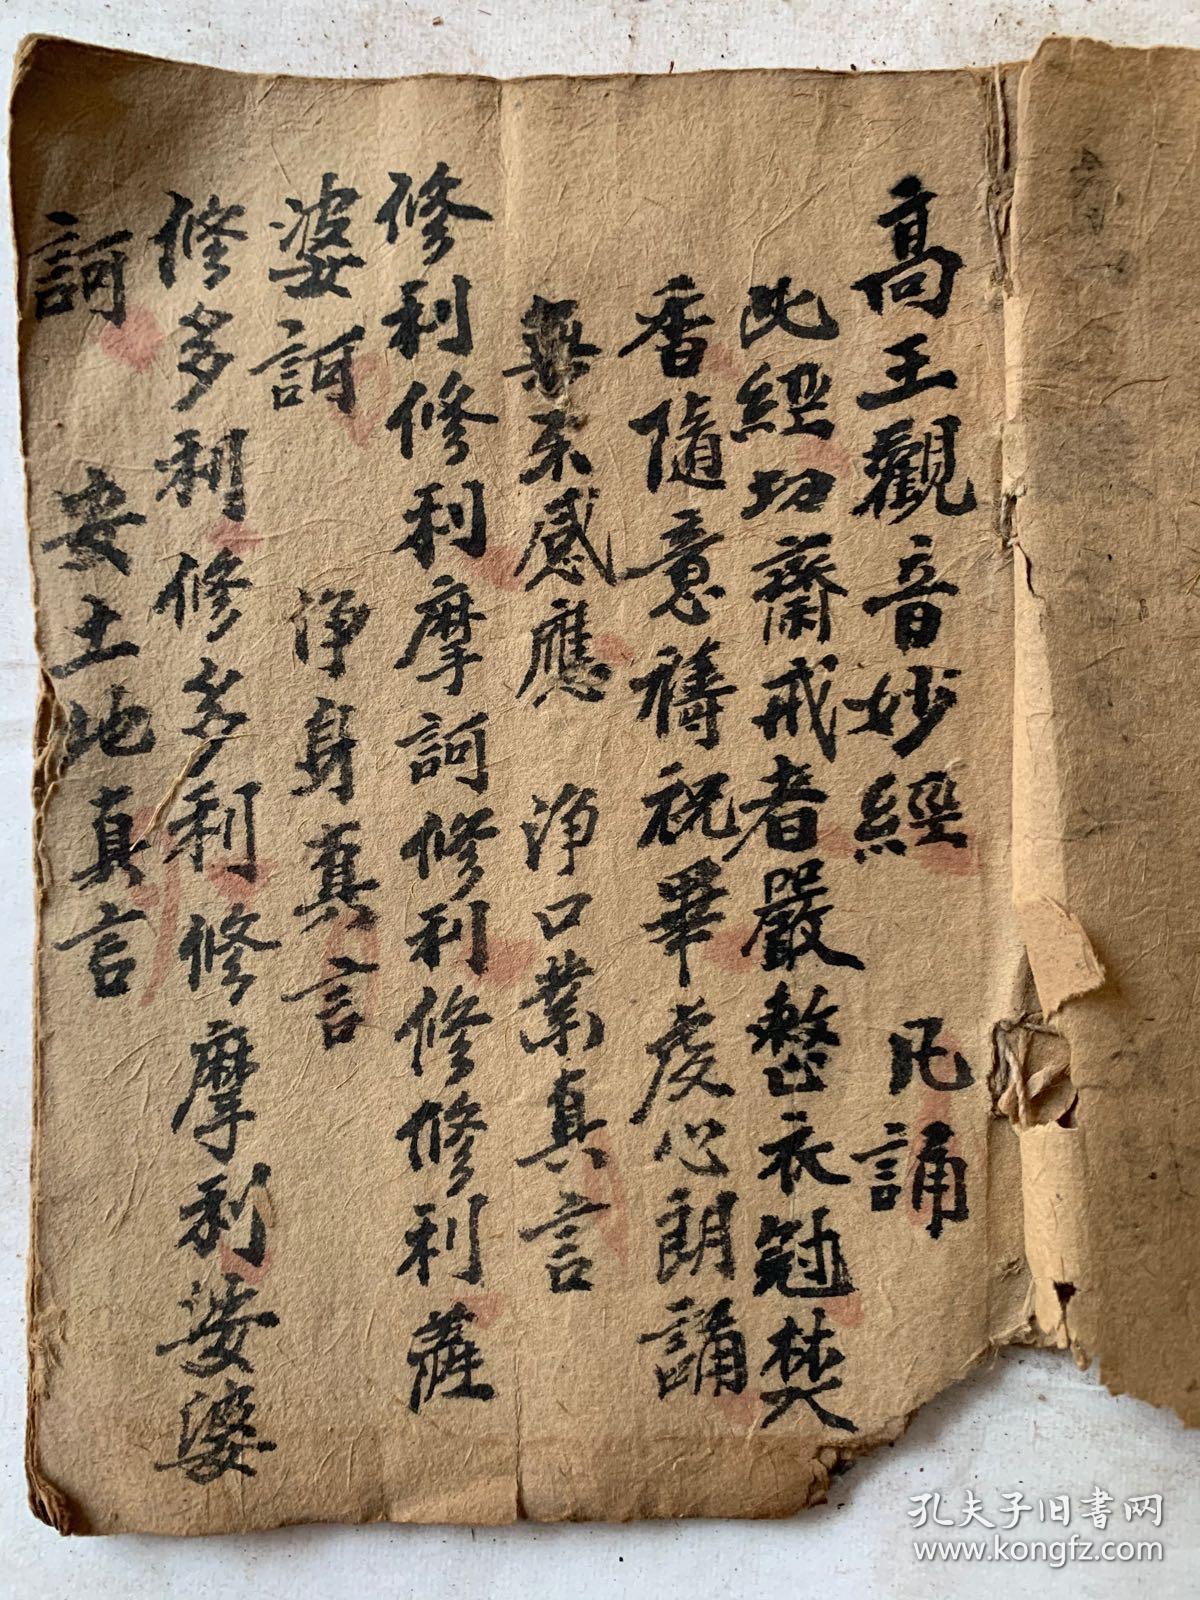 高王觀音妙經 凡誦
此經切齋戒者嚴整衣冠焚
香隨意禱祝畢虔心朗誦
無不感應 淨口業真言
修利修利摩訶修利修修利薩
婆訶 淨身真言
修多利修多利修摩利娑婆
訶 安土地真言
孔夫子旧书网
www.kongfz.com